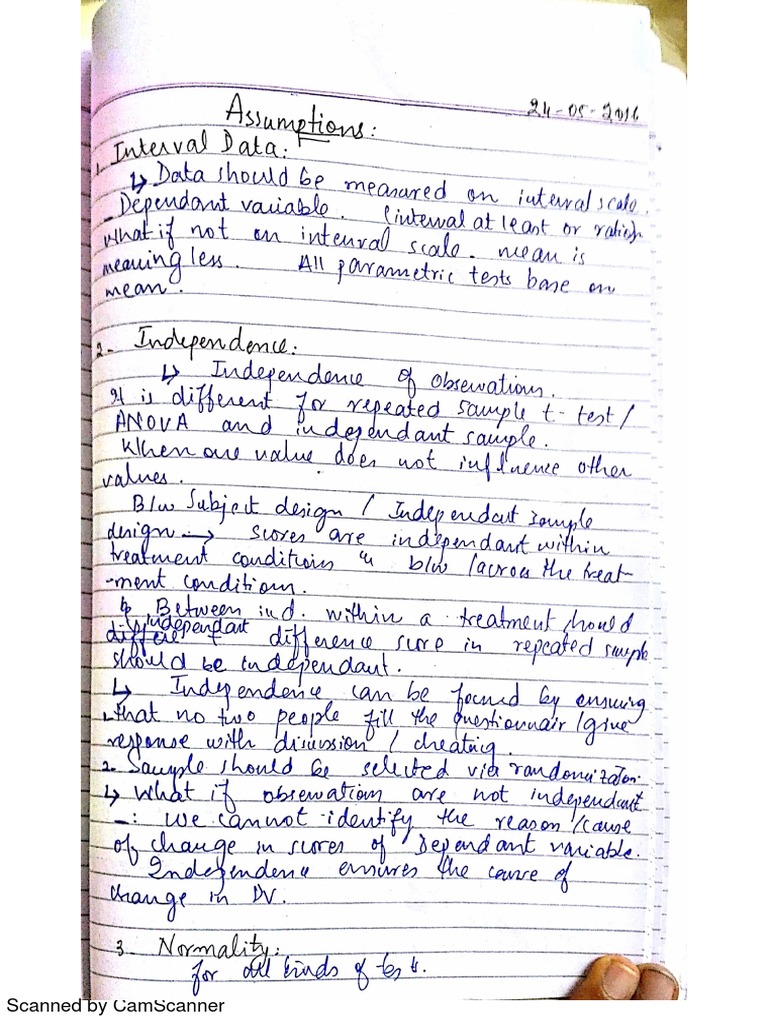 24-05-2016
Assumptions:
1. Interval Data:
↳ Data should be measured on interval scale.
- Dependant variable. (interval at least or ratio).
What if not on interval scale. mean is
meaningless. All parametric tests base on
mean.
2- Independence:
↳ Independence of observations.
It is different for repeated sample t-test/
ANOVA and independant sample.
When one value does not influence other
values.
B/w Subject design / Independant sample
design → scores are independant within
treatment conditions & b/w /across the treat-
-ment conditions.
↳ Between ind. within a treatment should
independant difference score in repeated sample
should be independant.
↳ Independence can be focused by ensuring
1. that no two people fill the questionnair /give
response with discussion / cheating.
2. Sample should be selected via randomization.
↳ What if observation are not independant
-: We cannot identify the reason /cause
of change in scores of Dependant variable.
Independence ensures the cause of
change in DV.
3. Normality:
for all kinds of tests.
Scanned by CamScanner